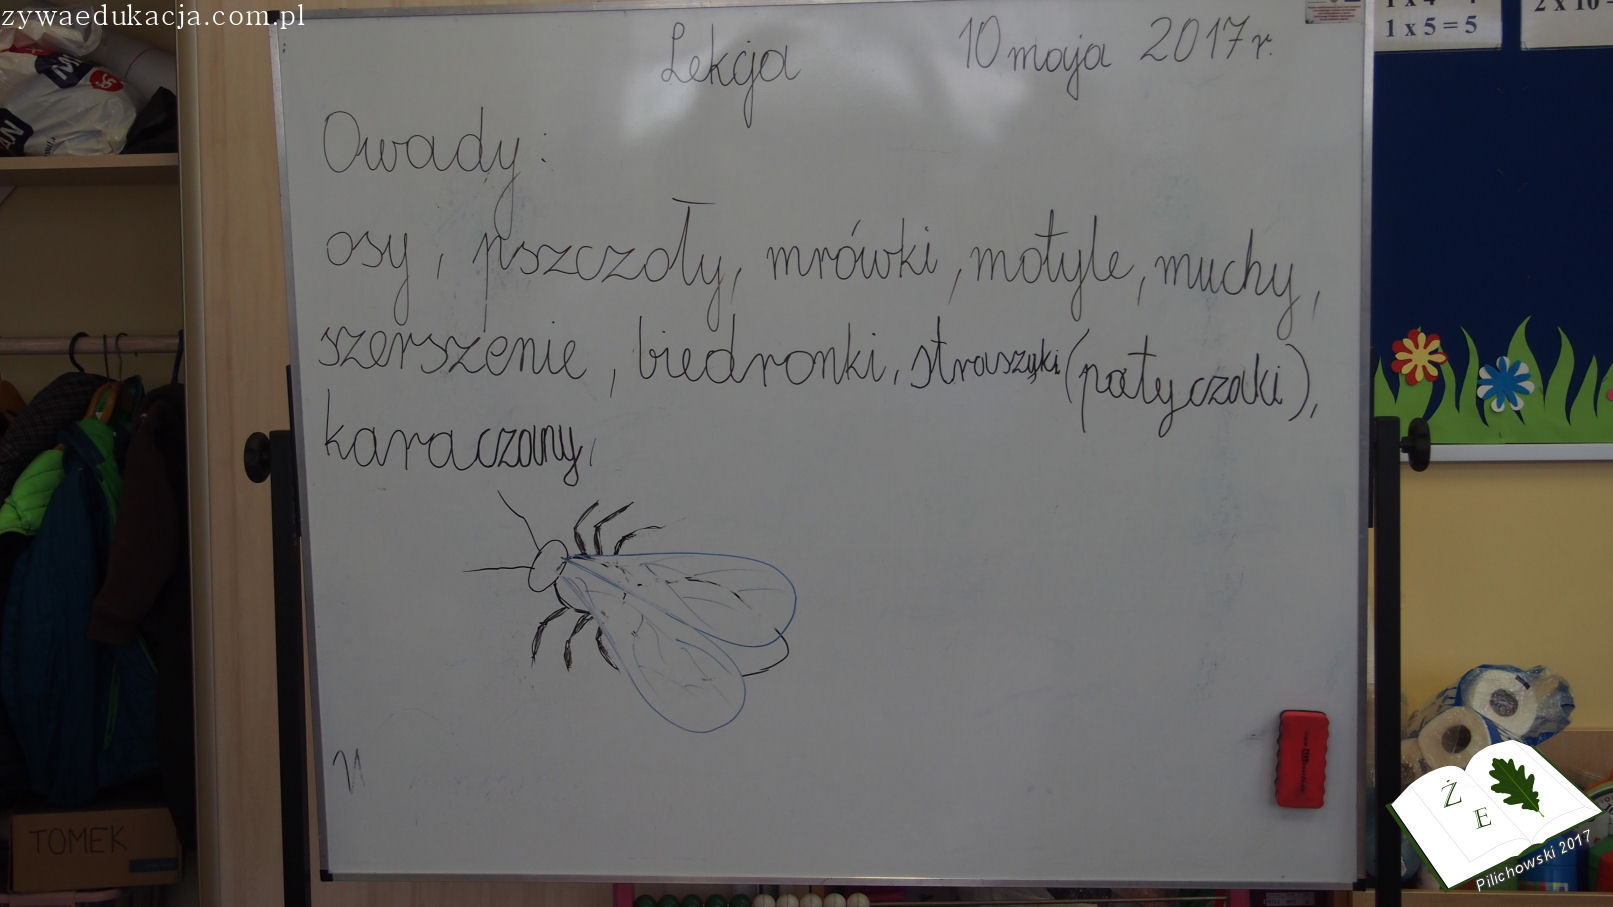 zywaedukacja.com.pl
1 x 5 = 5
Lekcja 10 maja 2017 r.
Owady:
osy, pszczoły, mrówki, motyle, muchy,
szerszenie, biedronki, straszyki (patyczaki),
karaczany,
TOMEK
Ż
E
Pilichowski 2017